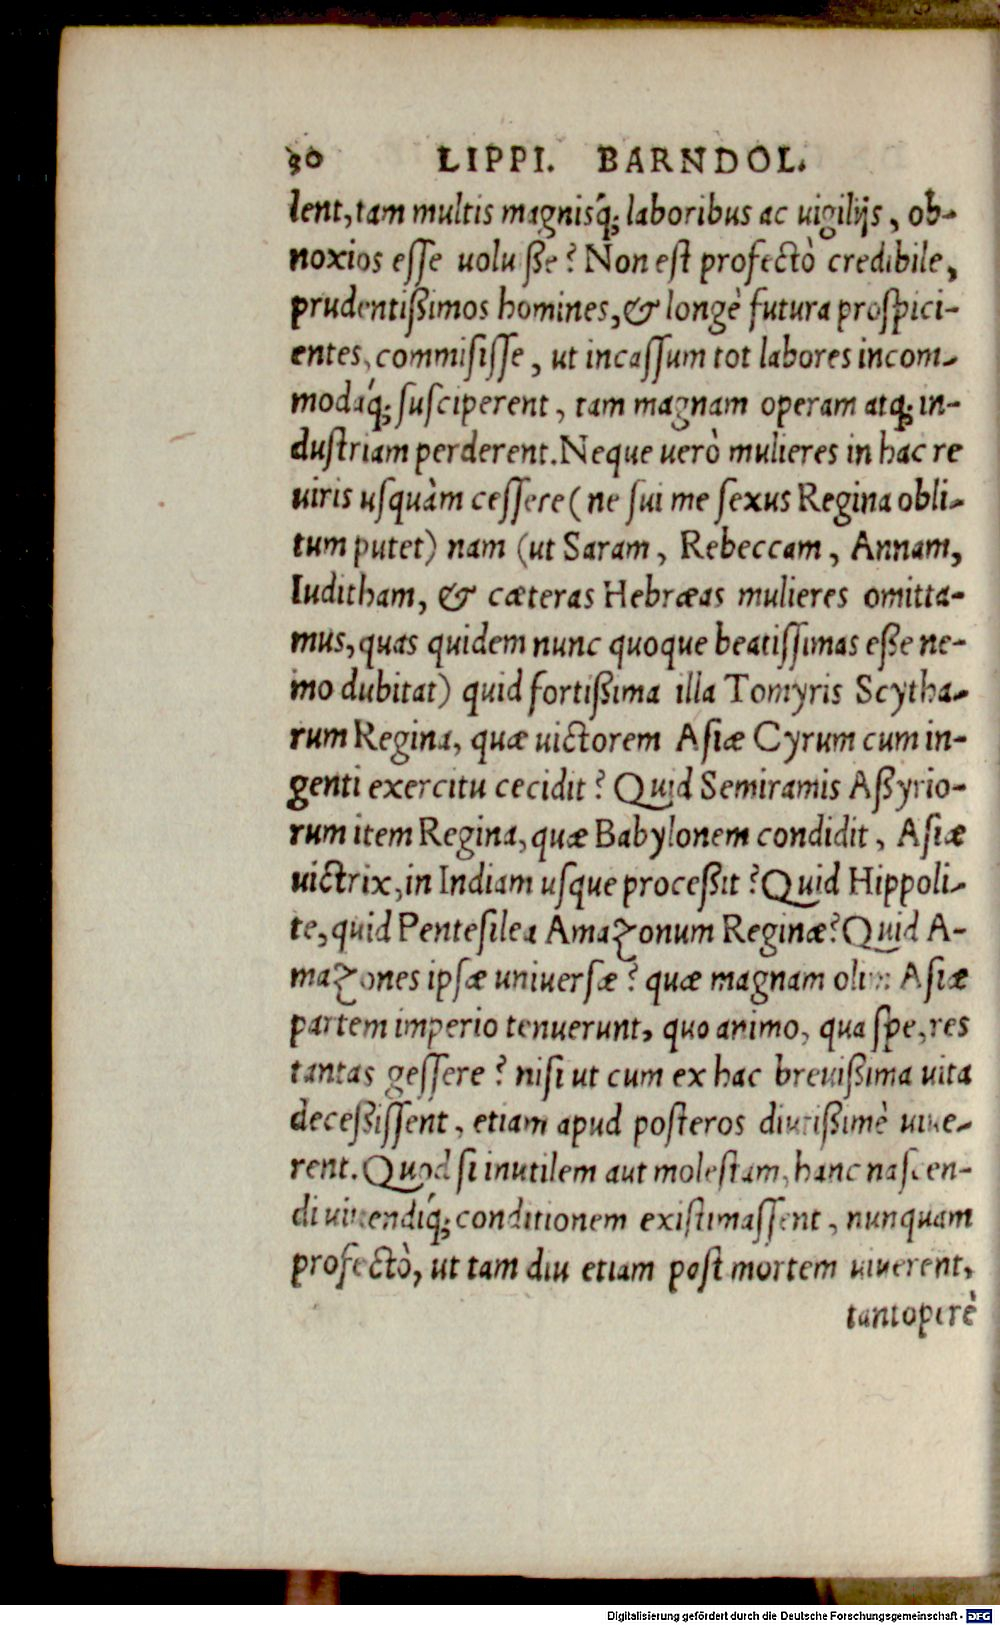 30 LIPPI. BARNDOL.
lent, tam multis magnisq́; laboribus ac uigilijs, ob-
noxios eſſe uoluiße? Non eſt profectò credibile,
prudentißimos homines, & longè futura proſpici-
entes, commiſiſſe, ut incaſſum tot labores incom-
modaq́; ſuſciperent, tam magnam operam atq; in-
duſtriam perderent. Neque uerò mulieres in hac re
uiris uſquàm ceſſere (ne ſui me ſexus Regina obli-
tum putet) nam (ut Saram, Rebeccam, Annam,
Iuditham, & cæteras Hebræas mulieres omitta-
mus, quas quidem nunc quoque beatiſſimas eße ne-
mo dubitat) quid fortißima illa Tomyris Scytha-
rum Regina, quæ uictorem Aſiæ Cyrum cum in-
genti exercitu cecidit? Quid Semiramis Aßyrio-
rum item Regina, quæ Babylonem condidit, Aſiæ
uictrix, in Indiam uſque proceßit? Quid Hippoli-
te, quid Penteſilea Amazonum Reginæ? Quid A-
mazones ipſæ uniuerſæ? quæ magnam olim Aſiæ
partem imperio tenuerunt, quo animo, qua ſpe, res
tantas geſſere? niſi ut cum ex hac breuißima uita
deceßiſſent, etiam apud poſteros diutißimè uiue-
rent. Quod ſi inutilem aut moleſtam, hanc naſcen-
di uiuendiq́; conditionem exiſtimaſſent, nunquam
profectò, ut tam diu etiam poſt mortem uiuerent,
tantoperè
Digitalisierung gefördert durch die Deutsche Forschungsgemeinschaft - DFG